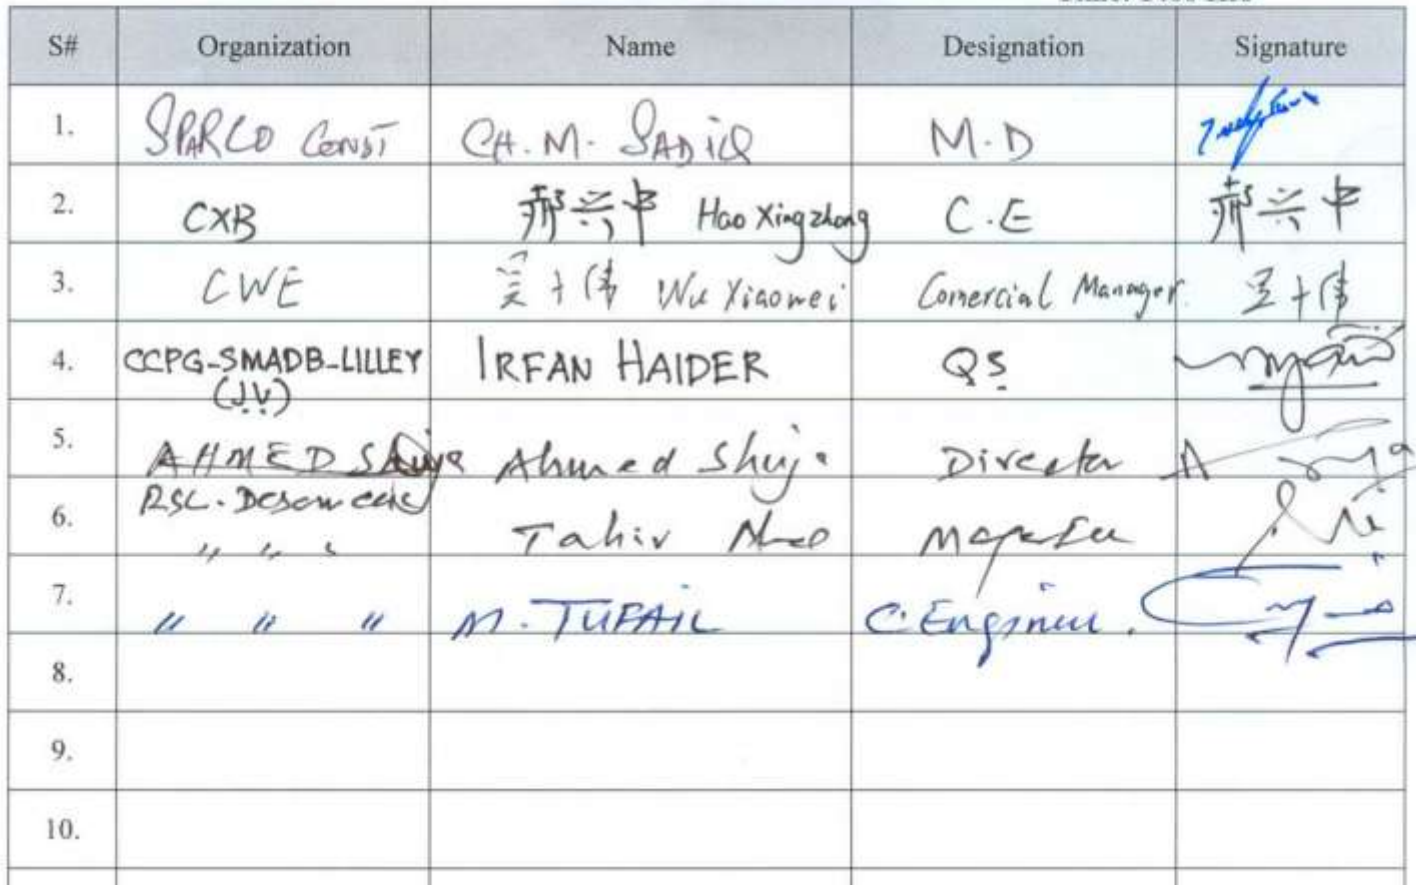 S# Organization Name Designation Signature
1. SPARCO CONST CH. M. SADIQ M.D
2. CXB 郝兴中 Hao Xingzhong C.E 郝兴中
3. CWE 吴小伟 Wu Xiaowei Comercial Manager 吴小伟
4. CCPG-SMADB-LILLEY IRFAN HAIDER QS
(J.V)
5. AHMED Shuja Ahmed Shuja Director
RSL.
6. Tahir
" " "
7. " " " M. TUFAIL C. Engineer.
8.
9.
10.